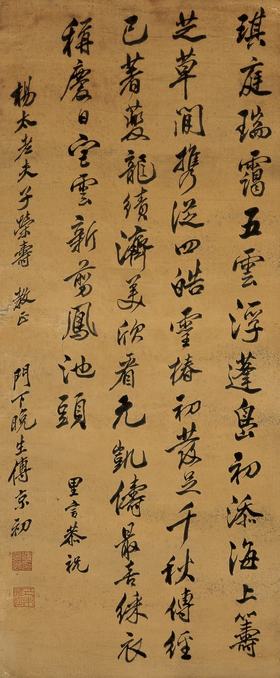 琪庭瑞靄五雲浮蓬島初添海上籌
芝草閒攜從四皓靈椿初發足千秋傳經
已著夔龍績濟美欣看元凱儔最喜綵衣
稱慶日宮雲新剪鳳池頭 里言恭祝
楊太老夫子榮壽 教正 門下晚生傅京初